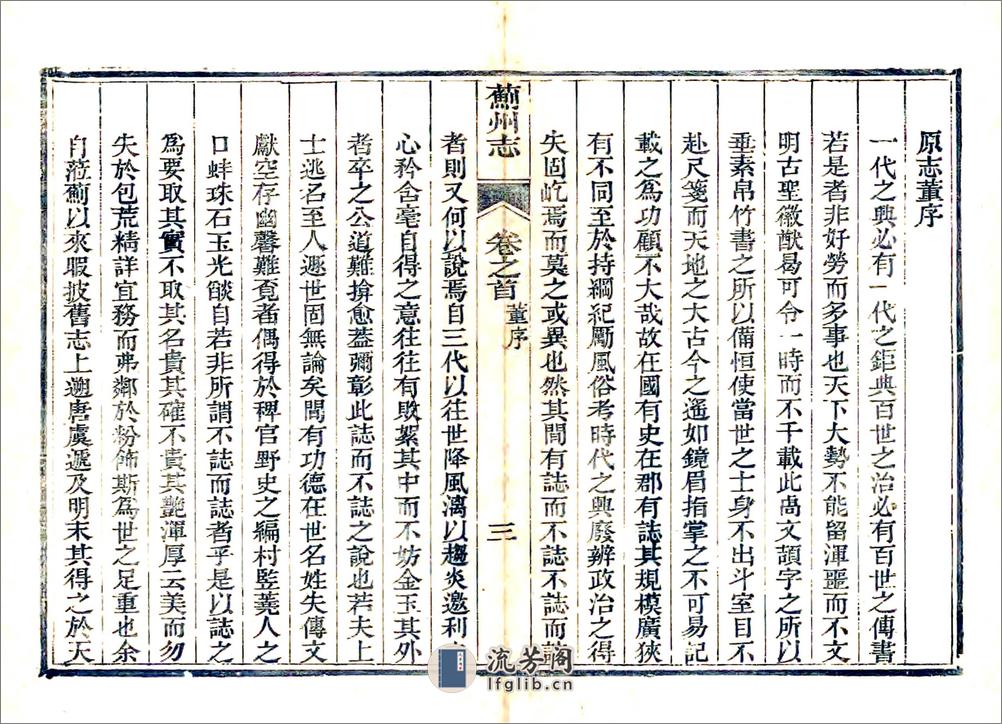 原志董序
一代之興必有一代之鉅典百世之治必有百世之傳書
若是者非好勞而多事也天下大勢不能留渾噩而不文
明古聖徽猷曷可令一時而不千載此卨文頡字之所以
垂素帛竹書之所以備恒使當世之士身不出斗室目不
赴尺箋而天地之大古今之遥如鏡眉指掌之不可易記
載之為功顧不大哉故在國有史在郡有誌其規模廣狹
有不同至於持綱紀勵風俗考時代之興廢辨政治之得
失固屹焉而莫之或異也然其間有誌而不誌不誌而誌
薊州志
卷之首
董序
三
者則又何以說焉自三代以往世降風漓以趨炎邀利之
心矜含毫自得之意往往有敗絮其中而不妨金玉其外
者卒之公道難揜愈蓋彌彰此誌而不誌之說也若夫上
士逃名至人遯世固無論矣間有功德在世名姓失傳文
獻空存幽馨難覓者偶得於稗官野史之編村監蕘人之
口蚌珠石玉光燄自若非所謂不誌而誌者乎是以誌之
為要取其實不取其名貴其確不貴其艷渾厚云美而勿
失於包荒精詳宜務而弗鄰於粉飾斯為世之足重也余
自蒞薊以來暇披舊志上遡唐虞遞及明末其得之於天
流芳閣
lfglib.cn